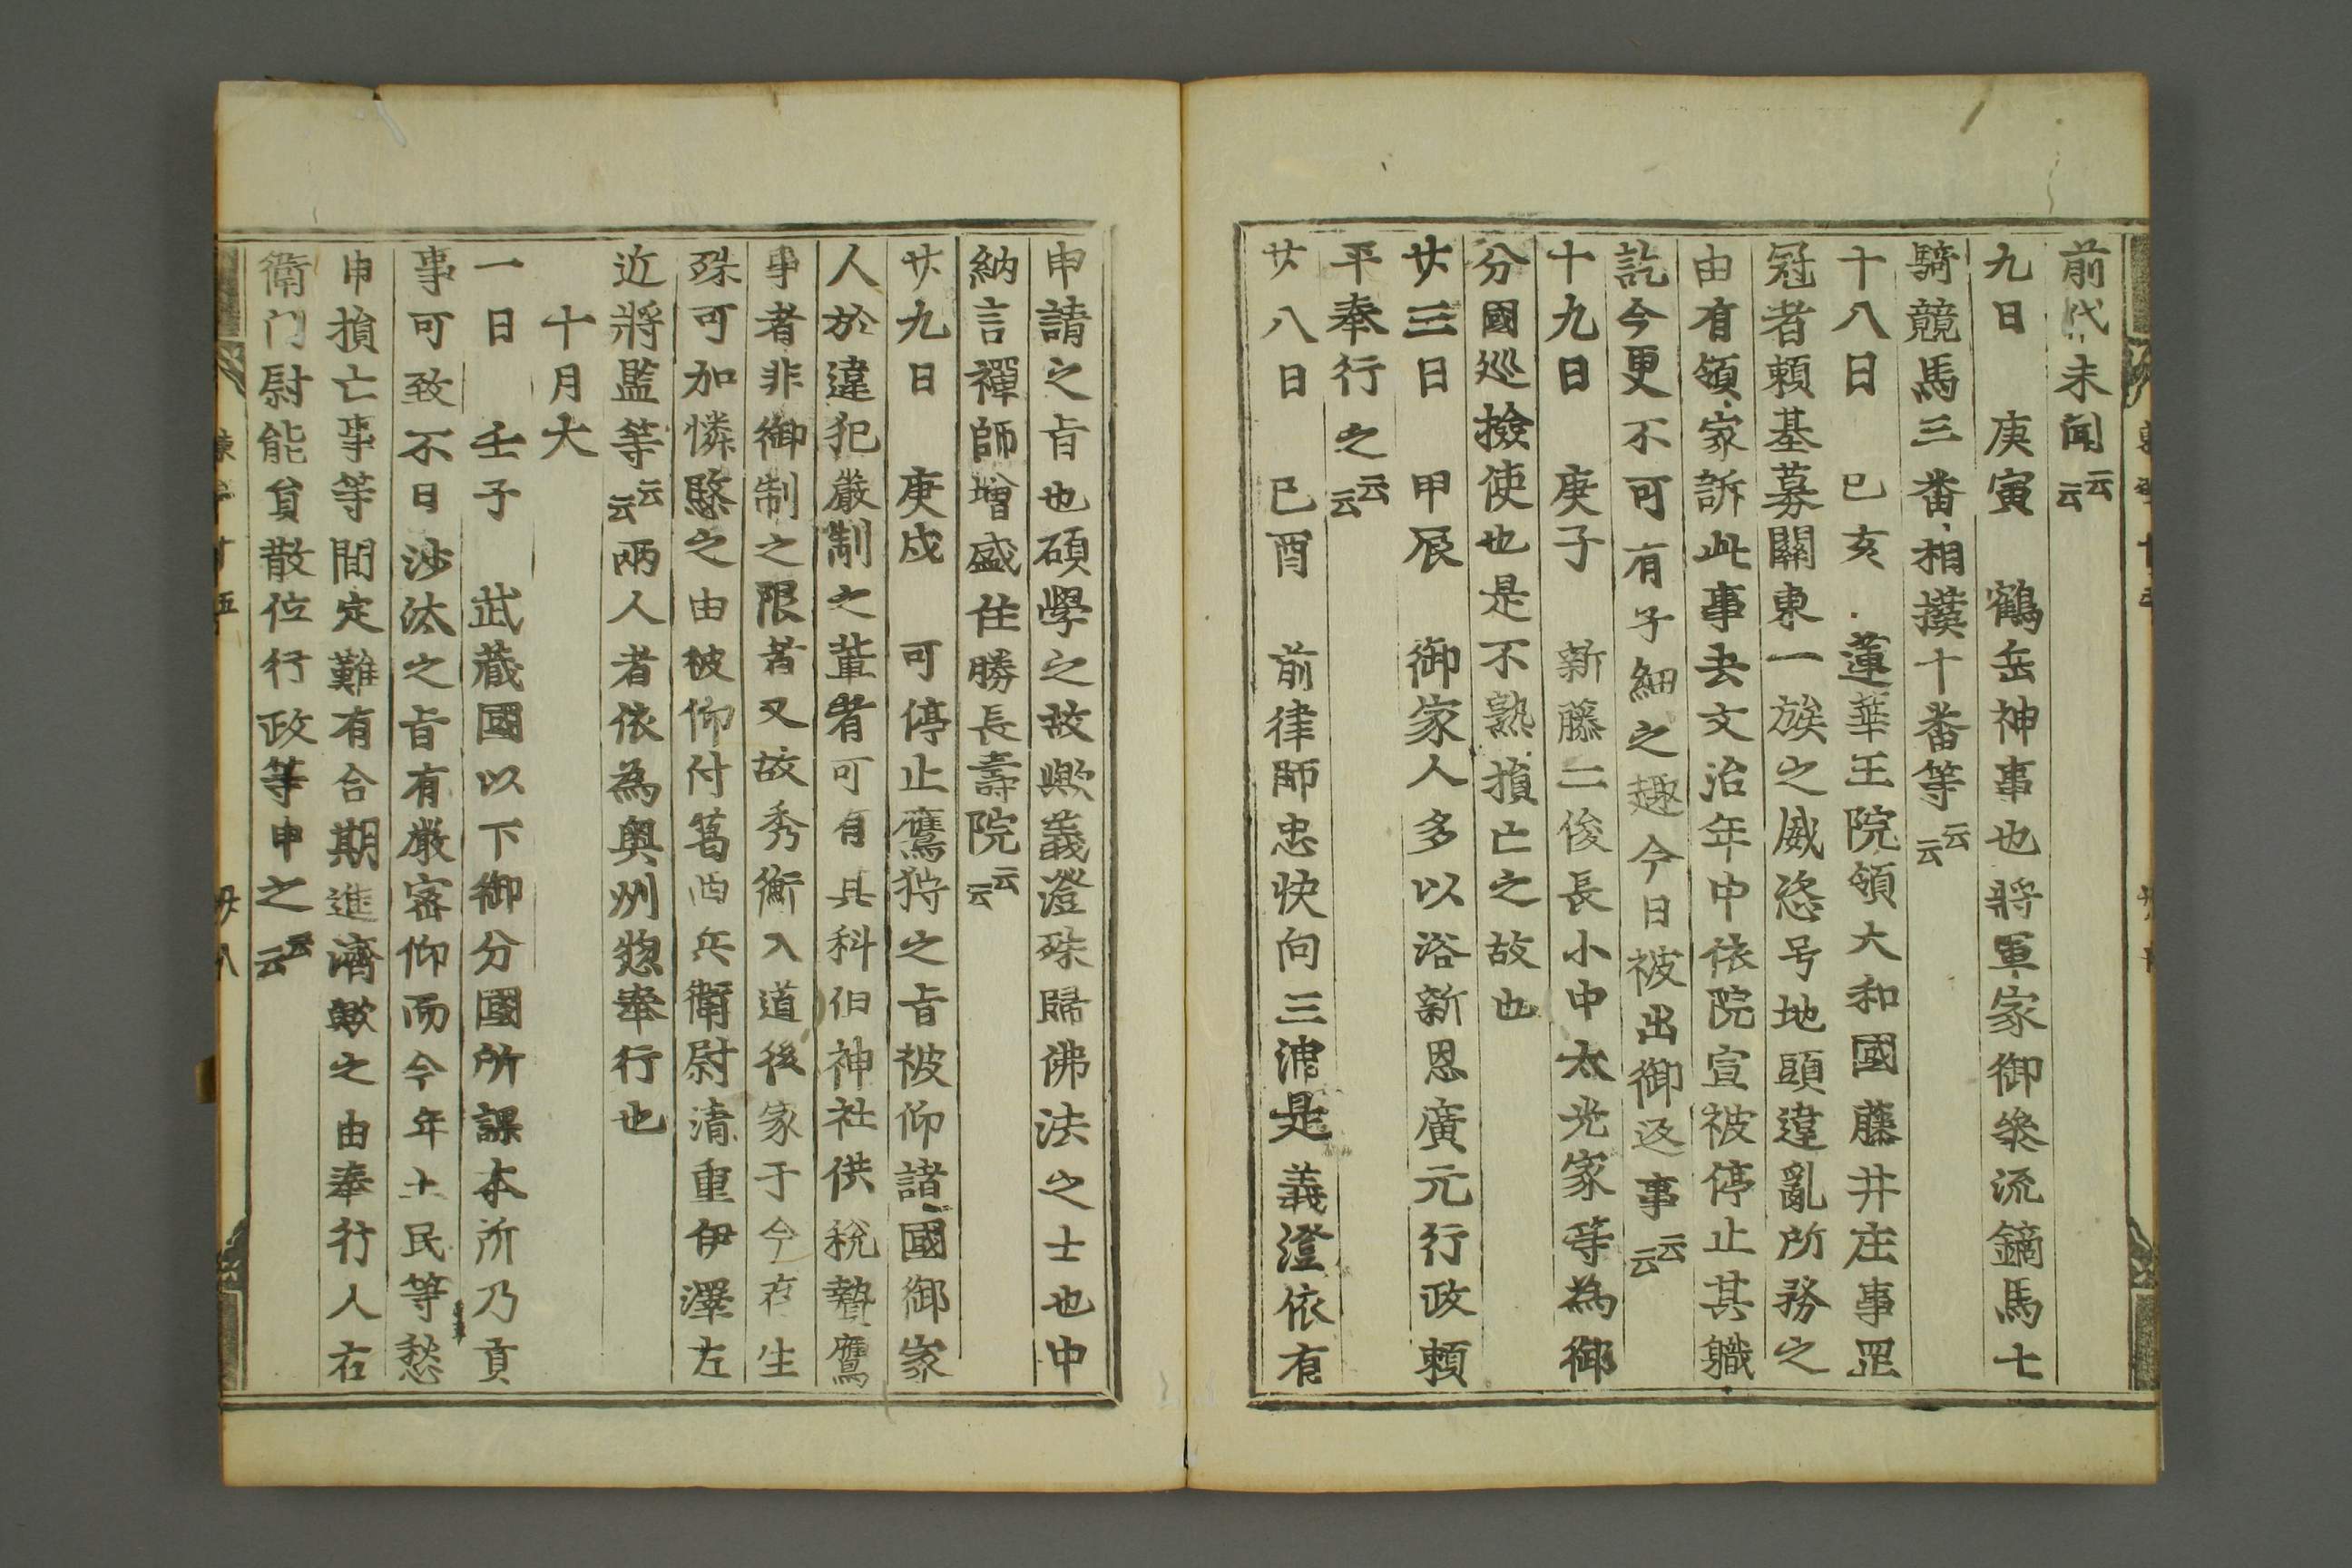 前代未聞云云
九日　庚寅　鶴岳神事也將軍家御參流鏑馬士
騎競馬三番相撲十番等云云
十八日　巳亥　蓮華王院領大和國藤井庄事罡
冠者頼基募關東一族之威恣号地頭違亂所務之
由有領家訴此事去文治年中依院宣被停止其軄
訖今更不可有子細之趣今日被出御返事云云
十九日　庚子　新藤二俊長小中太光家等為御
分國巡撿使也是不熟損亡之故也
廿三日　甲辰　御家人多以浴新恩廣元行政頼
平奉行之云云
廿八日　巳酉　前律師忠快向三浦是義澄依有
申請之旨也碩學之故歟義澄殊歸佛法之士也中
納言禪師増盛住勝長壽院云云
廿九日　庚戌　可停止鷹狩之旨被仰諸國御家
人於違犯嚴制之輩者可有其科但神社供税贄鷹
事者非御制之限者又故秀衡入道後家于今存生
殊可加憐愍之由被仰付葛西兵衛尉清重伊澤左
近將監等云云兩人者依為奥州惣奉行也
十月大
一日　壬子　武藏國以下御分國所課本所乃貢
事可致不日沙汰之旨有嚴密仰而今年土民等愁
申損亡事等間定難有合期進濟歟之由奉行人右
衛门尉能負散位行政等申之云云